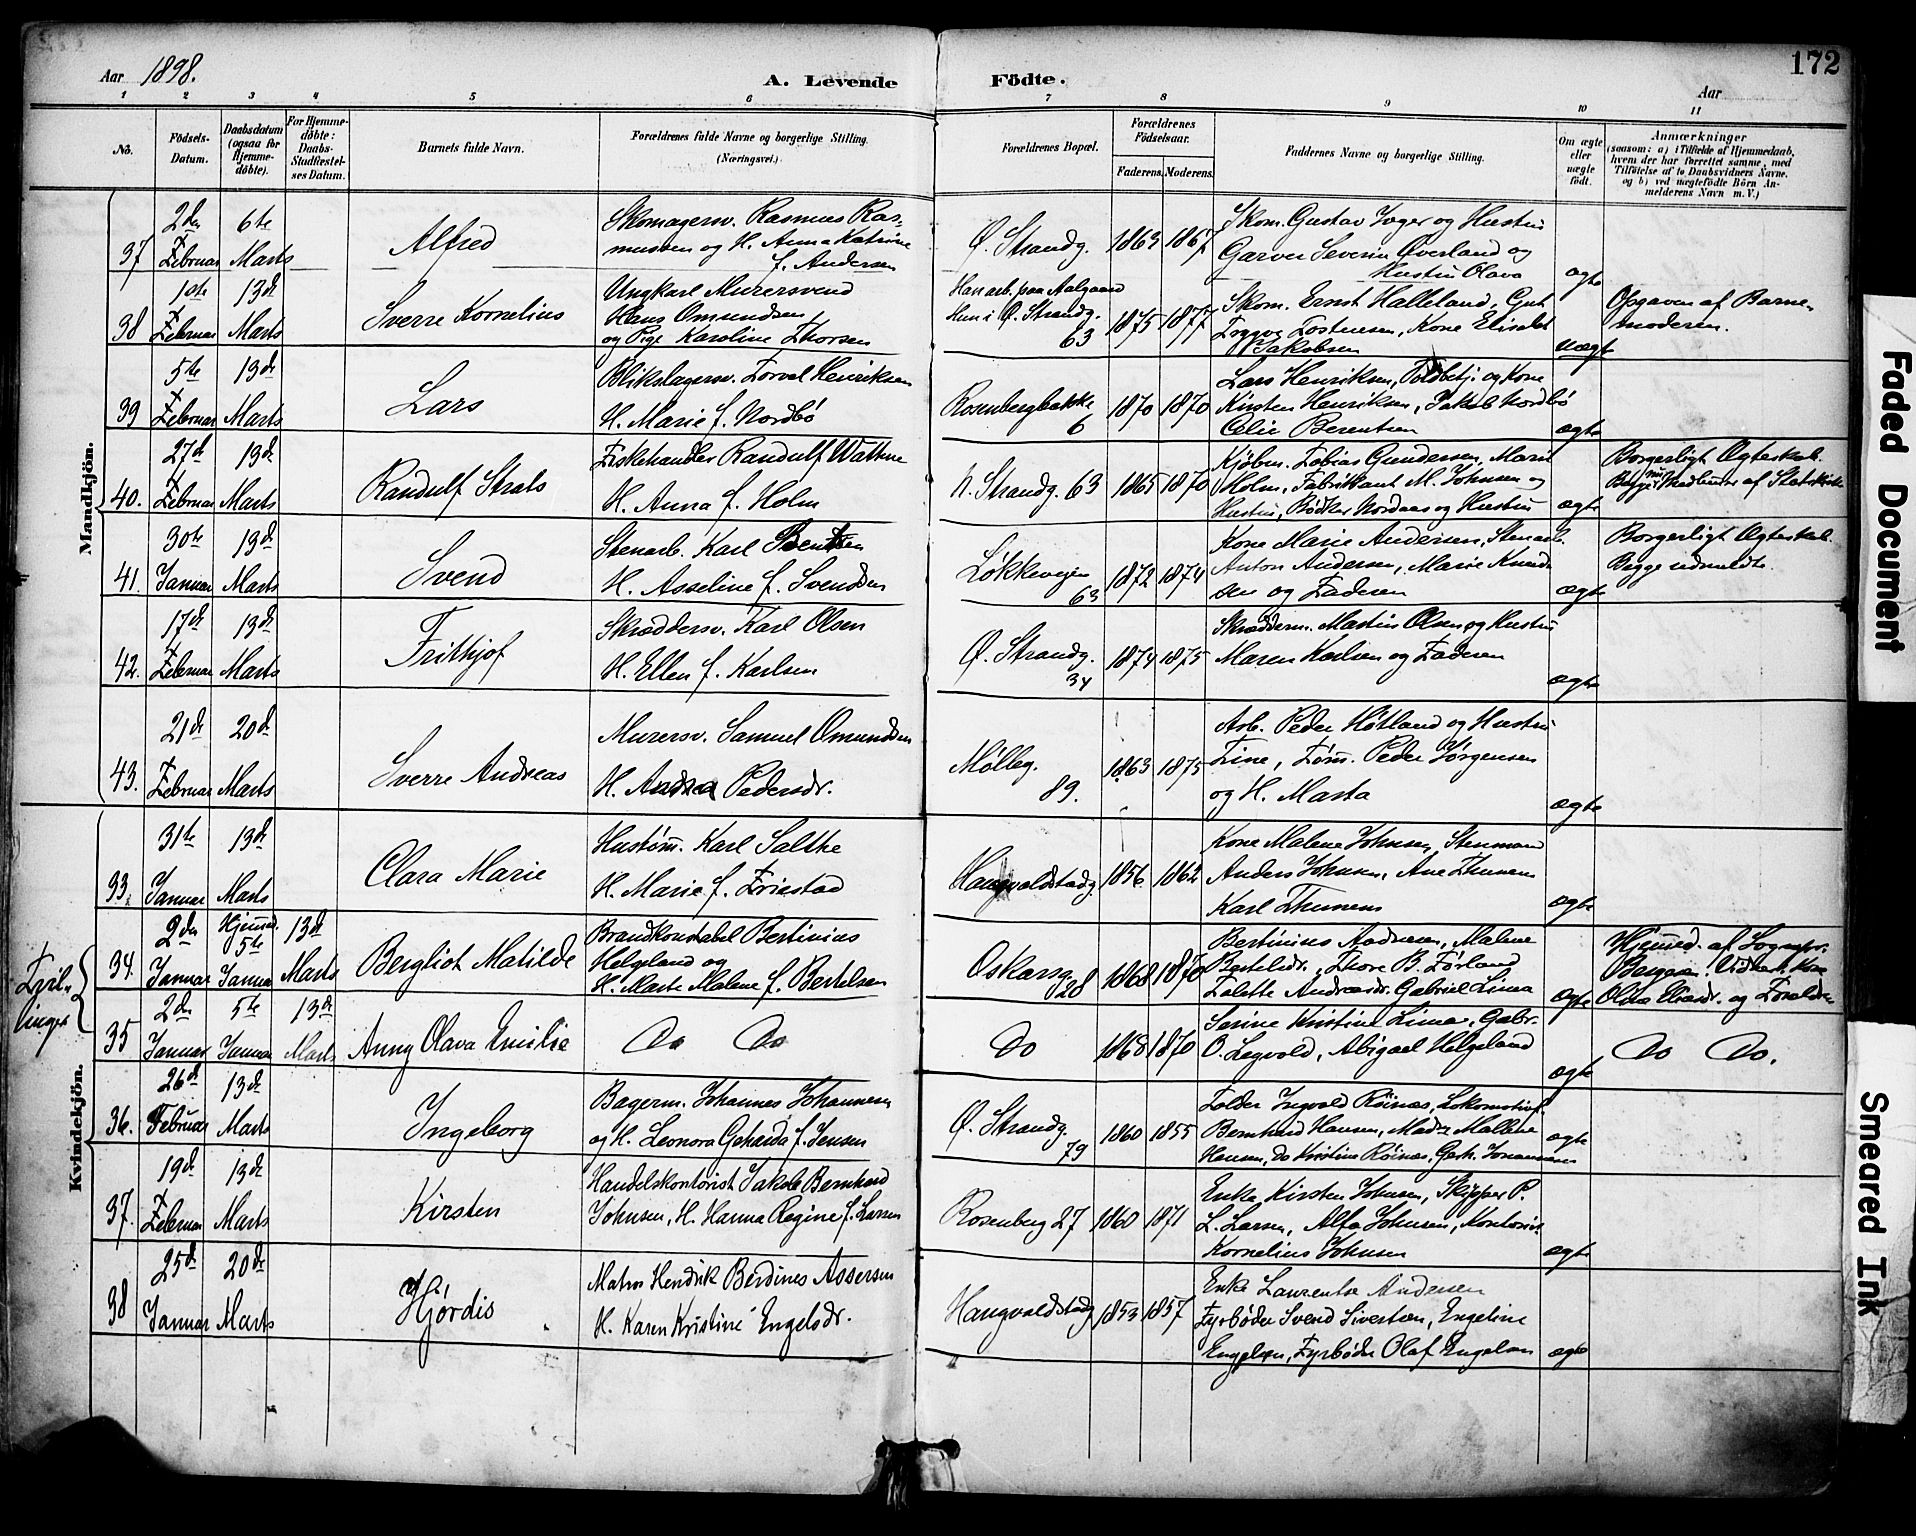 172
Aar 1898.
A. Levende Födte.
Aar
1 2 3 4 5 6 7 8 9 10 11
No.
Födsels-Datum.
Daabsdatum (ogsaa for Hjemme-döbte).
For Hjemme-döbte: Daabs-Stadfæstel-ses Datum.
Barnets fulde Navn.
Forældrenes fulde Navne og borgerlige Stilling. (Næringsvei.)
Forældrenes Bopæl.
Forældrenes Fødselsaar.
Faderens. Moderens.
Faddernes Navne og borgerlige Stilling.
Om ægte eller uægte født.
Anmærkninger
(saasom: a) i Tilfælde af Hjemmedaab, hvem der har forrettet samme, med Tilføielse af to Daabsvidners Navne. og b) ved uægtefödte Börn An-melderens Navn m. V.)
Mandkjön.
37 2den Februar 6te Marts Alfred
Skomagersv. Rasmus Ras-
mussen og H. Anna Katrine
f. Andersen
Ø. Strandg. 1863 1867
Skom. Gustav Iver og Hustru
Garver Severin Øverland og
Hustru Olava
ægte
38 10te Februar 13de Marts Sverre Kornelius
Ungkarl Murersvend
Hans Omundsen
og Pige Karoline Thorsen
Han arb. paa Aalgaard
Hun i Ø. Strandg.
63 1875 1877
Skom. Ernst Halleland, Gut
Tryggve Tostensen, Kone Elisabet
Jakobsen
uægte
Opgaven af Barne-
moderen.
39 5te Februar 13de Marts Lars
Blikslagersv. Torval Henriksen
H. Marie f. Nordbø
Rosenbergbakke
6 1870 1870
Lars Henriksen, Toldbetj. og Kone
Kirsten Henriksen, Jakob Nordbø
Olie Berentsen
ægte
40. 27de Februar 13de Marts Randulf Strats
Fiskehandler Randulf Wathne
H. Anna f. Holm
N. Strandg. 63 1865 1870
Kjøbm. Tobias Gundersen, Marie
Holm, Fabrikant M. Johnsen og
Hustru, Bødker Nordaas og Hustru
ægte
Borgerligt Ægteskab.
Begge Medlemmer af Statskirke
41. 30te Januar 13de Marts Svend
Stenarb. Karl Bentsen
H. Asseline f. Svendsen
Løkkeveien
63 1872 1874
Kone Marie Andersen, Stenarb.
Anton Andersen, Marie Knud-
sen og Faderen
ægte
Borgerligt Ægteskab.
Begge udmeldte.
42. 17de Februar 13de Marts Frithjof
Skræddersv. Karl Olsen
H. Ellen f. Karlsen
Ø. Strandg.
34 1874 1875
Skrædderm. Martin Olsen og Hustru
Maren Karlsen og Faderen
ægte
43. 21de Februar 20de Marts Sverre Andreas
Murersv. Samuel Omundsen
H. Andrea Pedersdr.
Mølleg.
89. 1863 1875
Arb. Peder Høtland og Hustru
Tine, Tøm. Peder Jørgensen
og H. Marta
ægte
Kvindekjön.
33. 31te Januar 13de Marts Clara Marie
Hustøm. Karl Salthe
H. Marie f. Friestad
Haugvaldstadg. 1856 1862
Kone Malene Johnsen, Stenmand
Anders Johnsen, Ane Thunem
Karl Thunem
ægte
Tvil-
linger
34. 2den Januar Hjemmed. 5te Januar 13de Marts Bergliot Matilde
Brandkonstabel Bertinius
Helgeland og
H. Marte Malene f. Bertelsen
Oskarsg.
28 1868 1870
Bertinius Aadnesen, Malene
Bertelsdr., Thore B. Førland
Tolette Andreasdr. Gabriel Lima
ægte
Hjemmed. af Sognepr.
Olina Eliasdr. og Forældre
35 2den Januar 5te Januar 13de Marts Anny Olava Emilie
Do Do
Do 1868 1870
Serine Kristine Lima, Gabr.
O. Legvold, Abigael Helgeland
ægte
Do Do.
36. 26de Februar 13de Marts Ingeborg
Bagerm. Johannes Johannesen
og H. Leonora Geharda f. Jensen
Ø. Strandg.
79 1860 1855
Tolder Ingvald Röinæs, Lokomotivf.
Bernhard Hansen, Mad. Mallene
Hansen, do Kristine Röinæs, Gerh. Johannesen
ægte
37. 19de Februar 13de Marts Kirsten
Handelskontorist Jakob Bernhard
Johnsen, H. Hanna Regine f. Larsen
Rosenberg 27 1860 1871
Enke Kirsten Johnsen, Skipper P.
L. Larsen, Alfa Johnsen, Kontorist
Kornelius Johnsen
ægte
38 25de Januar 20de Marts Hjørdis
Matros Hendrik Berdines Assersen
H. Karen Kristine Engelsdr.
Haugvaldstadg 1853 1857
Enke Laurentse Andersen
Fyrbøder Svend Sivertsen, Engeline
Engelsen, Fyrbøder Olaf Engelsen
ægte
Faded Document
Smeared Ink